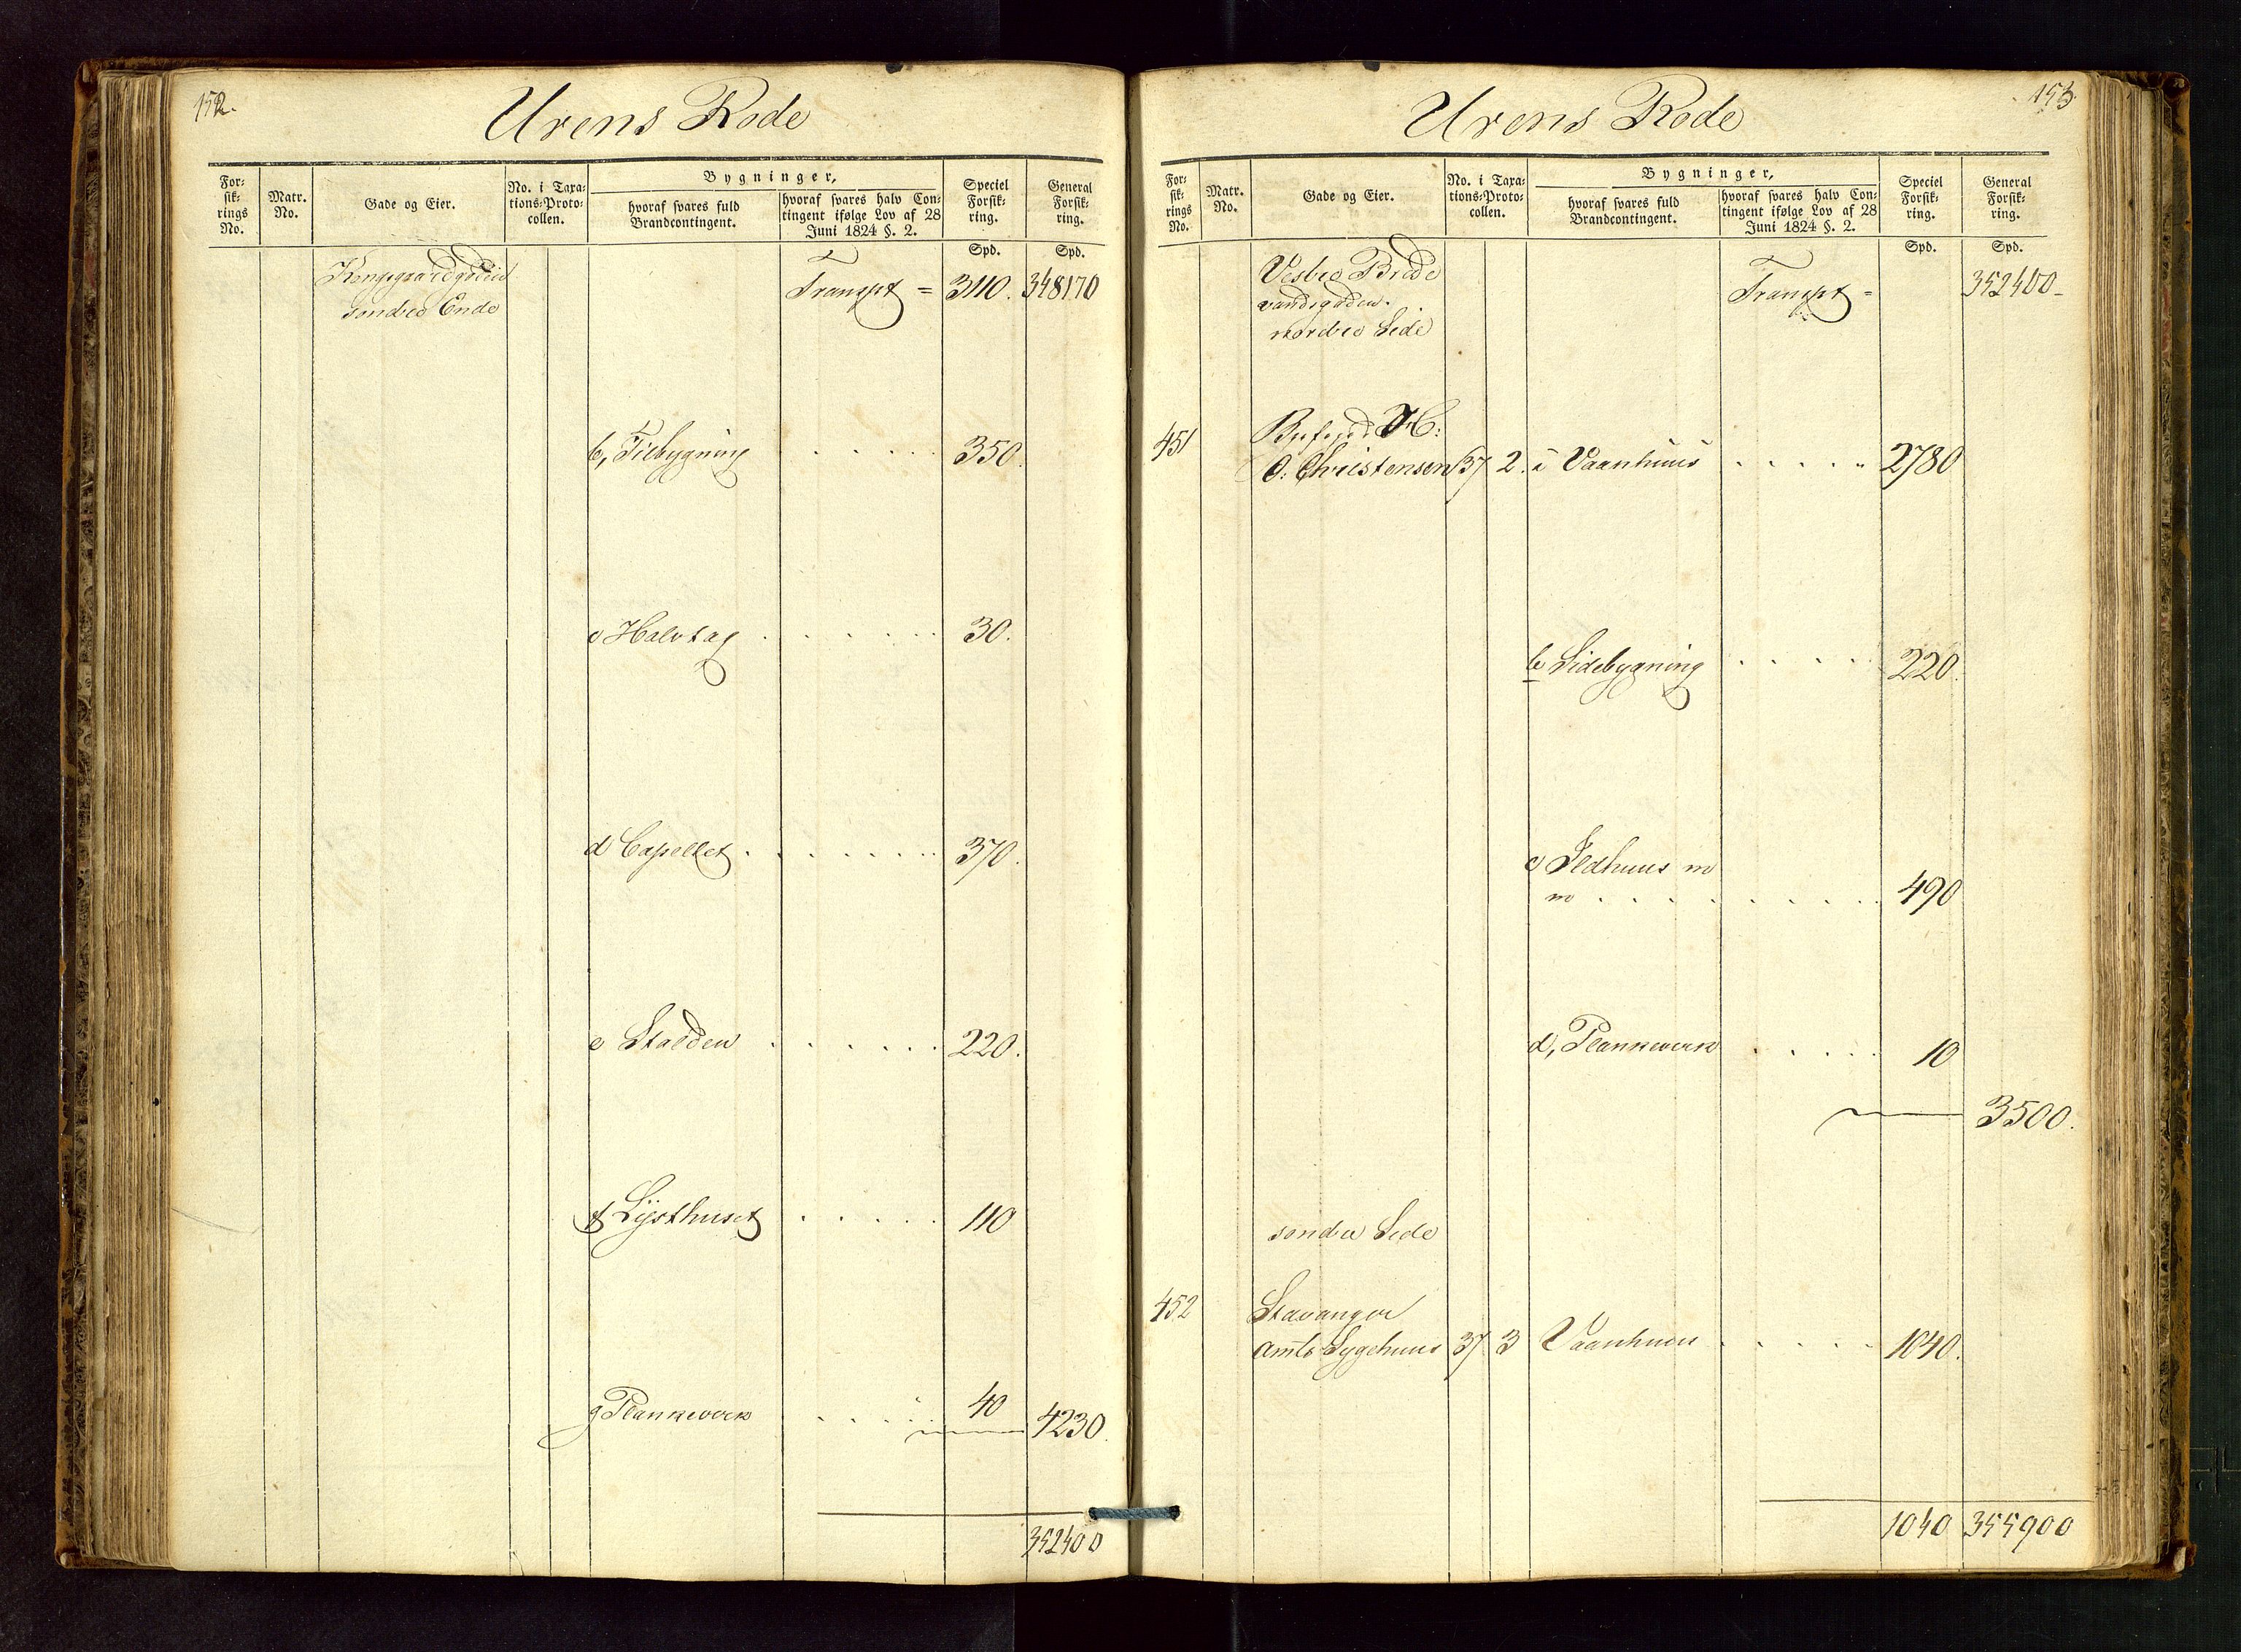 152.
Urens Rode
For-
sik-
rings
No.
Matr.
No.
Gade og Eier.
No. i Taxa-
tions-Proto-
collen.
Bygninger,
hvoraf svares fuld
Brandcontingent.
hvoraf svares halv Con-
tingent ifølge Lov af 28
Juni 1824 §. 2.
Speciel
Forsik-
ring.
General
Forsik-
ring.
Spd.
Spd.
Kongsgaardgaden
søndre Ende
Transpt = 3110. 348170
b, Tilbygning . . . . . 350.
c Halvtag . . . . . . . 30.
d Capellet . . . . . . . 370.
e Stalden . . . . . . 220.
f Lÿsthuset . . . . . 110
g Plankeverk . . . . . 40
4230.
352400
153.
Urens Rode
For-
sik-
rings
No.
Matr.
No.
Gade og Eier.
No. i Taxa-
tions-Proto-
collen.
Bygninger,
hvoraf svares fuld
Brandcontingent.
hvoraf svares halv Con-
tingent ifølge Lov af 28
Juni 1824 §. 2.
Speciel
Forsik-
ring.
General
Forsik-
ring.
Spd.
Spd.
Vestre Brede
vandsgaden.
nordre Side
Transpt = 352400-
451 Byfogd
O: Christensen 37 2. a Vaanhuus . . . . . 2780
b Sidebygning . . . . 220.
c Ildhuus m
m . . . . . . . . . 490
d, Plankeverk . . . . . 10
3500.
søndre Side
452 Stavanger
Amts Sygehuus 37 3 Vaanhuus . . . . . 1040.
1040 355900